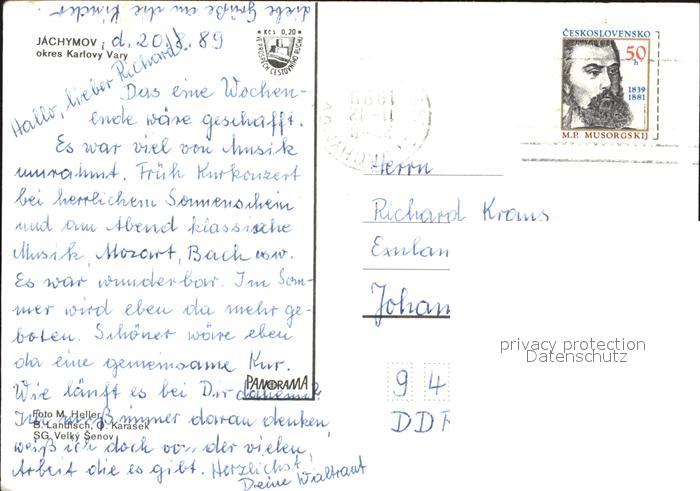 liebe Grüße an die Kinder
JÁCHYMOV, d. 20.8.89
okres Karlovy Vary
Kčs 0,20
VE PROSPĚCH CESTOVNÍHO RUCHU
Hallo, lieber Richard.
Das eine Wochen-
ende wäre geschafft.
Es war viel von Musik
umrahmt. Früh Kurkonzert
bei herrlichem Sonnenschein
und am Abend klassische
Musik, Mozart, Bach usw.
Es war wunderbar. Im Som-
mer wird eben da mehr ge-
boten. Schöner wäre eben
da eine gemeinsame Kur.
Wie läuft es bei Dir daheim?
immer daran denken,
weiß ich doch von der vielen
Arbeit die es gibt. Herzlichst,
Deine Waltraut
PANORAMA
Foto M. Heller,
B. Landisch, J. Karásek
SG Velký Šenov
ČESKOSLOVENSKO
50 h
1839
1881
M.P. MUSORGSKIJ
Herrn
Richard Kraus
Johan
9 4
DDR
privacy protection
Datenschutz